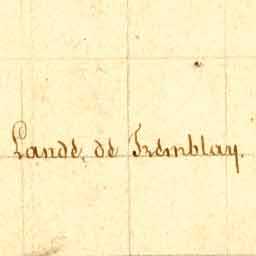 Lande de Tremblay.